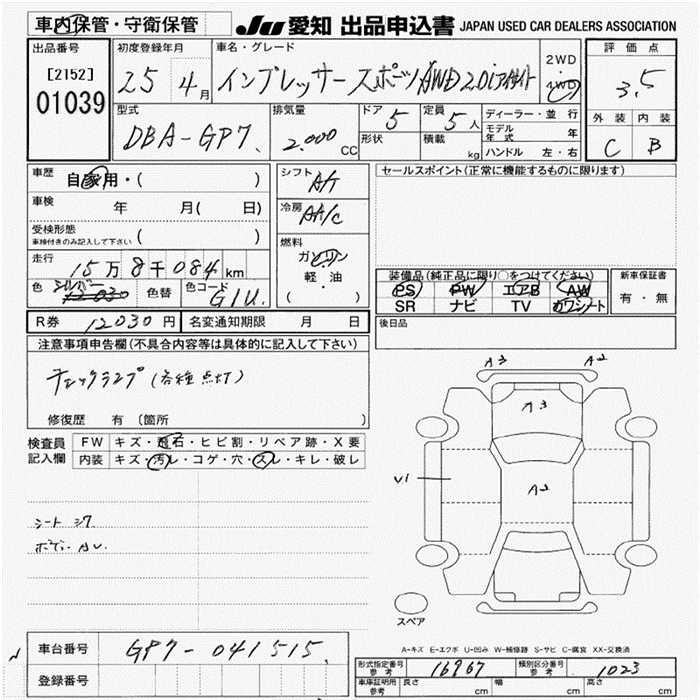 車内保管・守衛保管
JU 愛知 出品申込書 JAPAN USED CAR DEALERS ASSOCIATION
出品番号 初度登録年月 車名・グレード 評価点
[2152] 25 4月 インプレッサースポーツAWD2.0i 2WD 3.5
01039 4WD
外装 内装
型式 排気量 ドア 定員 ディーラー・並行
DBA-GP7 2.000CC 5 5人 モデル年式 年
形状 積載 kg ハンドル 左・右
C B
車歴 自家用・( ) シフト A/T セールスポイント(正常に機能するものに限ります)
車検 年 月( 日) 冷房 AA/C
受検形態 ( )
車検付きのみ記入して下さい
燃料 ガソリン
走行 15万8千084km 軽・油
( )
装備品(純正品に限り○をつけてください) 新車保証書
色 シルバー 12030 色替 色コード G1U. PS PW エアB AW 有・無
SR ナビ TV カワシート
R券 12030円 名変通知期限 月 日 後日品
注意事項申告欄(不具合内容等は具体的に記入して下さい)
チェックランプ(各種点灯)
修復歴 有 (箇所 )
検査員 FW キズ・飛石・ヒビ割・リペア跡・X要
記入欄 内装 キズ・汚レ・コゲ・穴・スレ・キレ・破レ
A3 A2
A3
V1 A2
シート シワ
ボデー AU.
スペア
A-キズ E-エクボ U-凹み W-補修跡 S-サビ C-腐食 XX-交換済
車台番号 GP7-041515
登録番号
形式指定番号 参考 16967 類別区分番号 参考 1023
車庫証明用 参考 長さ cm 幅 cm 高さ cm